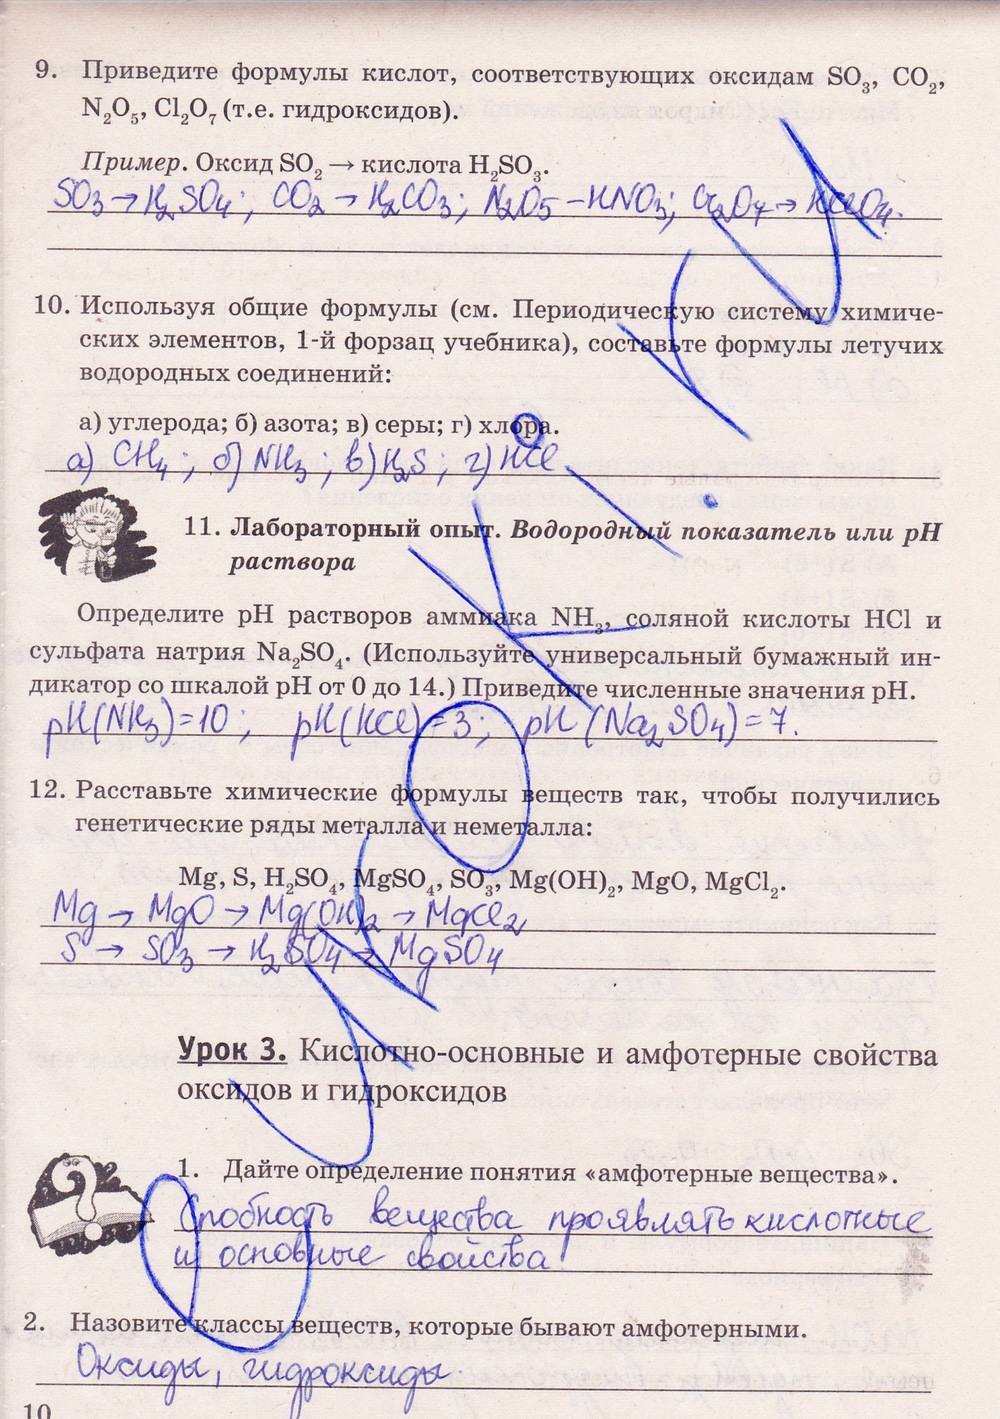 9. Приведите формулы кислот, соответствующих оксидам SO₃, CO₂,
N₂O₅, Cl₂O₇ (т.е. гидроксидов).
Пример. Оксид SO₂ → кислота H₂SO₃.
SO₃ → H₂SO₄; CO₂ → H₂CO₃; N₂O₅ – HNO₃; Cl₂O₇ → HClO₄.
10. Используя общие формулы (см. Периодическую систему химиче-
ских элементов, 1-й форзац учебника), составьте формулы летучих
водородных соединений:
а) углерода; б) азота; в) серы; г) хлора.
а) CH₄; б) NH₃; в) H₂S; г) HCl.
11. Лабораторный опыт. Водородный показатель или pH
раствора
Определите pH растворов аммиака NH₃, соляной кислоты HCl и
сульфата натрия Na₂SO₄. (Используйте универсальный бумажный ин-
дикатор со шкалой pH от 0 до 14.) Приведите численные значения pH.
pH(NH₃)=10; pH(HCl)=3; pH(Na₂SO₄)=7.
12. Расставьте химические формулы веществ так, чтобы получились
генетические ряды металла и неметалла:
Mg, S, H₂SO₄, MgSO₄, SO₃, Mg(OH)₂, MgO, MgCl₂.
Mg → MgO → Mg(OH)₂ → MgCl₂
S → SO₃ → H₂SO₄ → MgSO₄
Урок 3. Кислотно-основные и амфотерные свойства
оксидов и гидроксидов
1. Дайте определение понятия «амфотерные вещества».
Способность вещества проявлять кислотные
и основные свойства
2. Назовите классы веществ, которые бывают амфотерными.
Оксиды, гидроксиды.
10